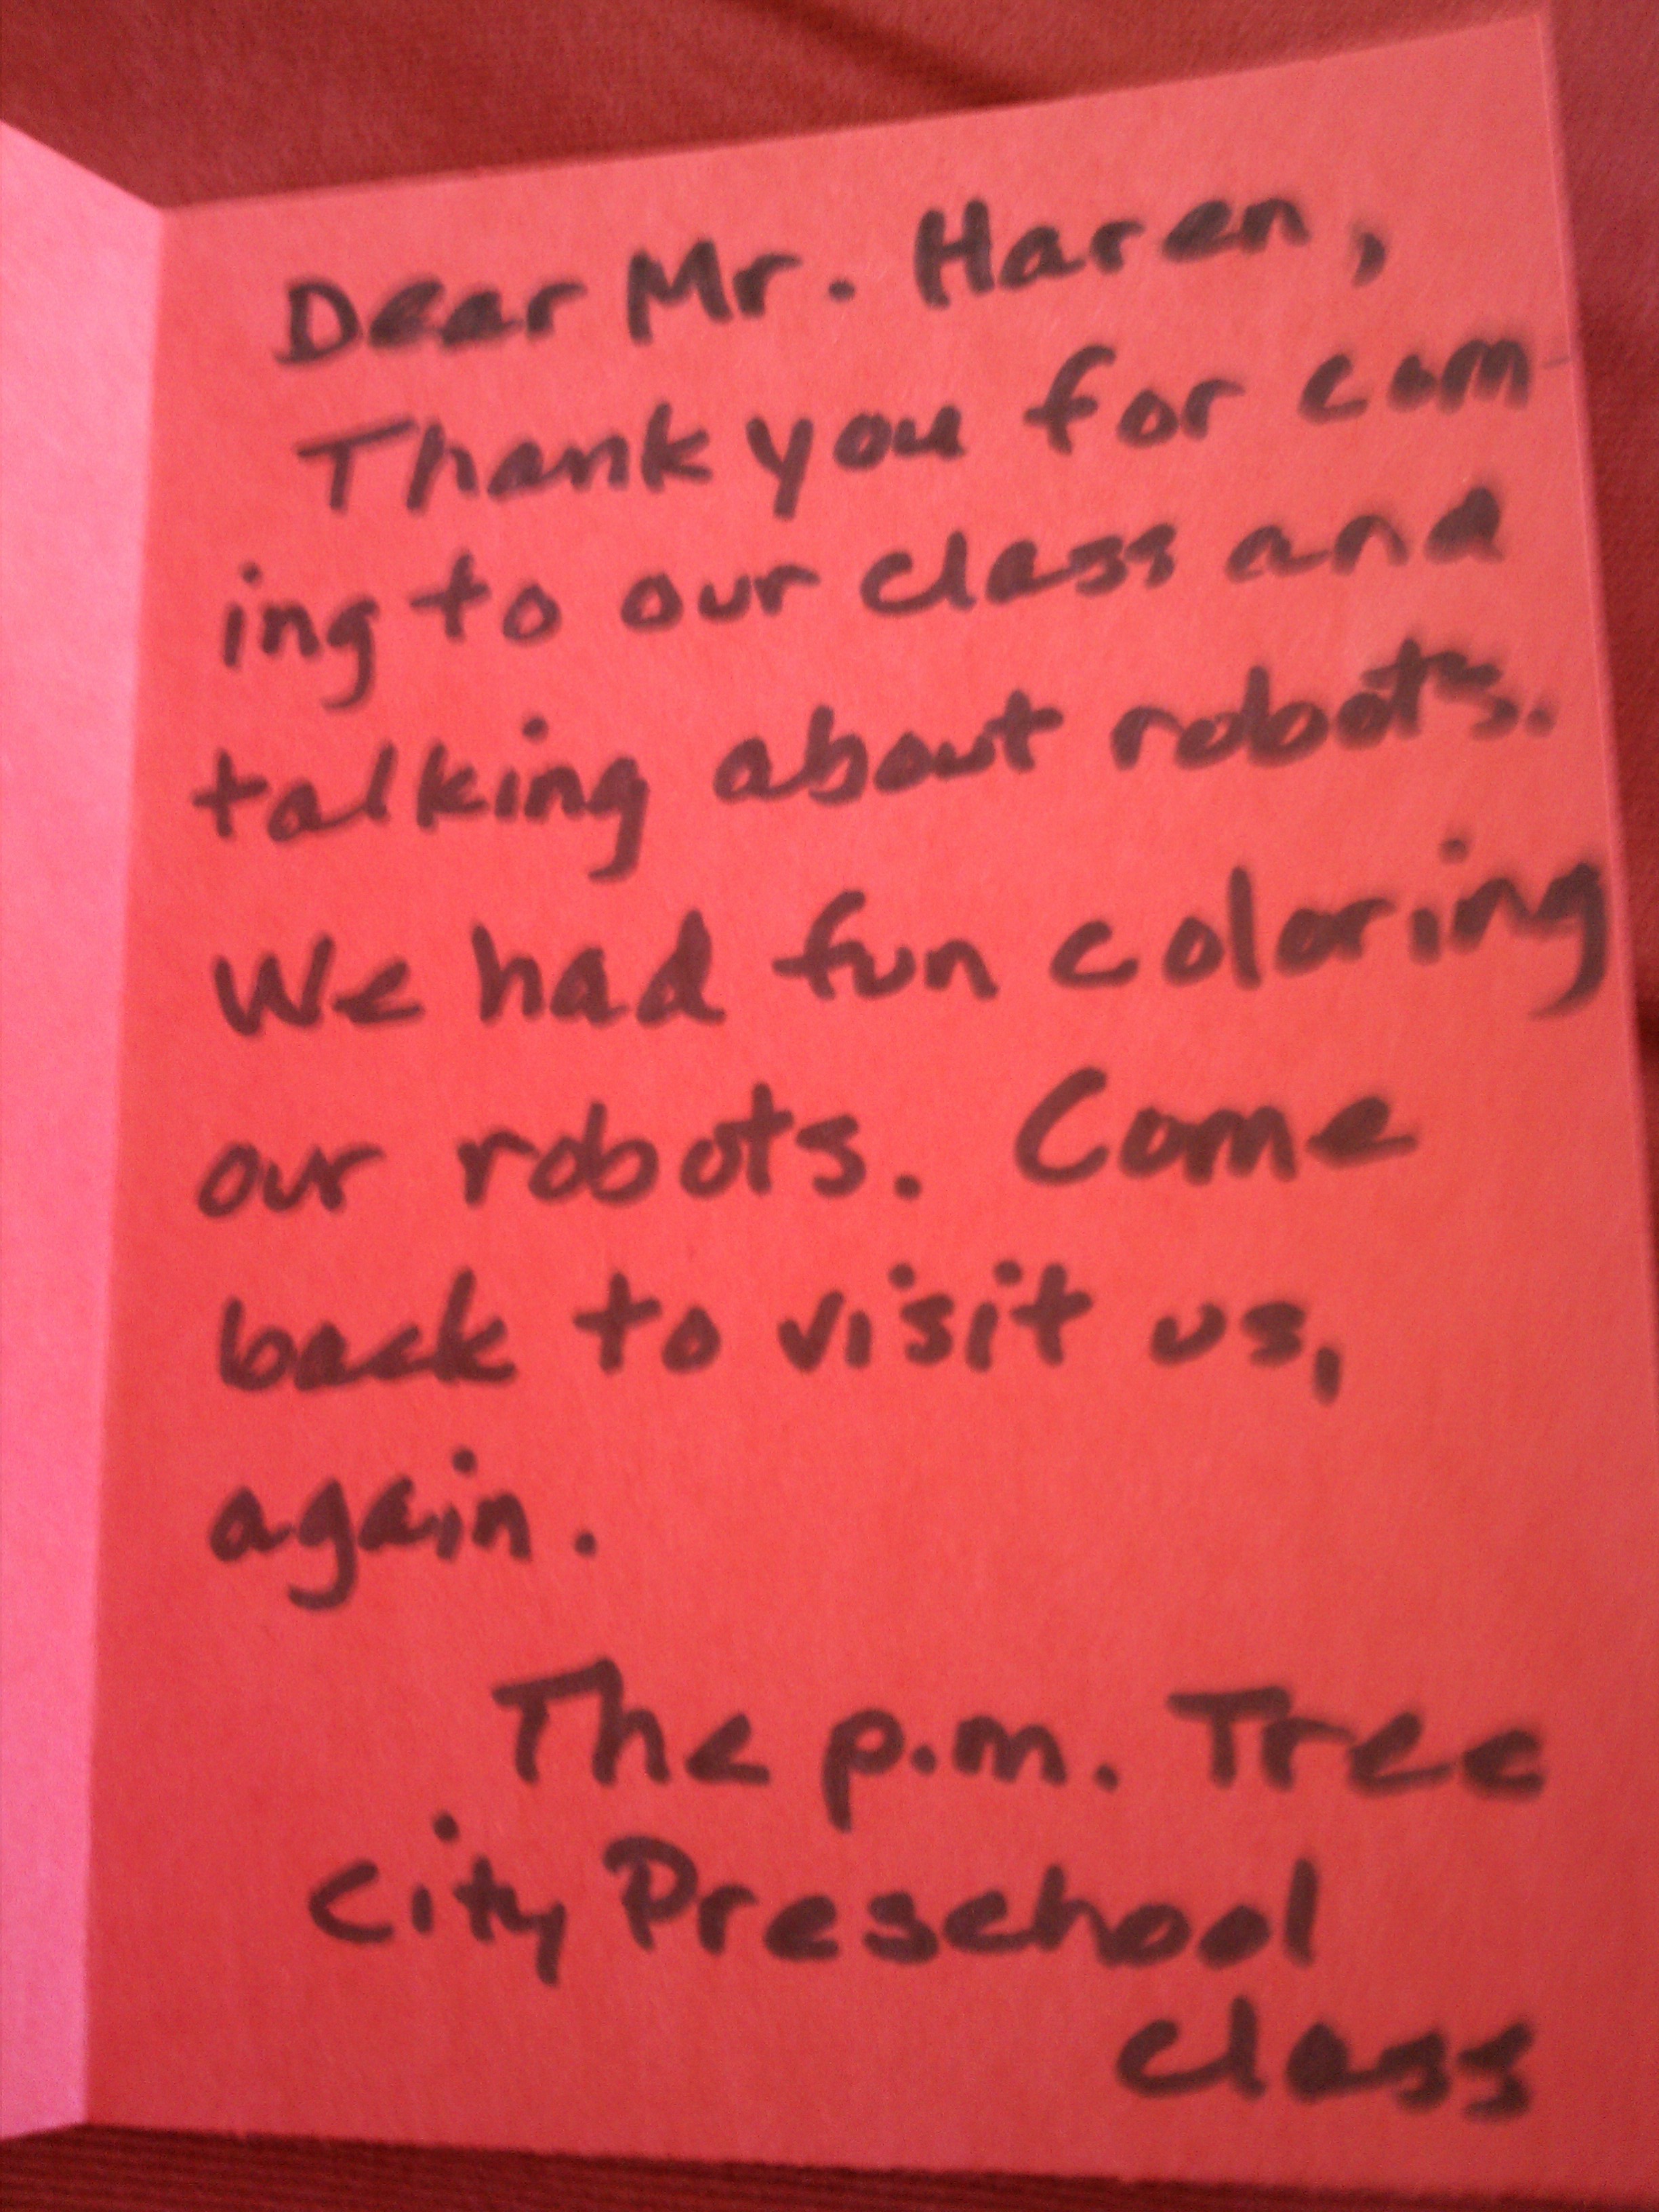 Dear Mr. Haren,
Thank you for com-
ing to our class and
talking about robots.
We had fun coloring
our robots. Come
back to visit us,
again.
The p.m. Tree
City Preschool
class